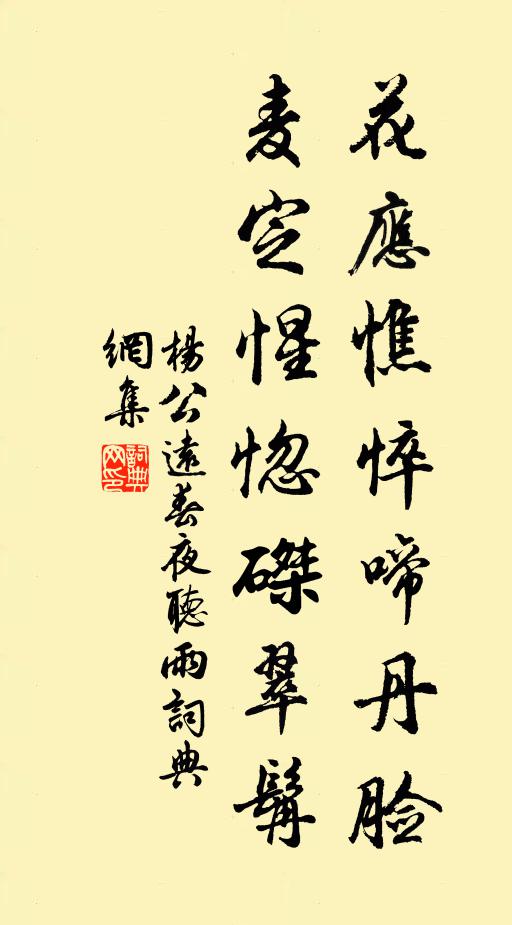 花應憔悴啼丹臉
麦定惺惚磔翠髯
楊公遠春夜聽雨詞典
網集
詞典
网印